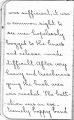 was sufficient, it was
a common sight to
see men hopelessly
bogged to the knees
and release made
difficult. After very
heavy and treacherous
going the track was
reached. The battle
when an
namely happy and